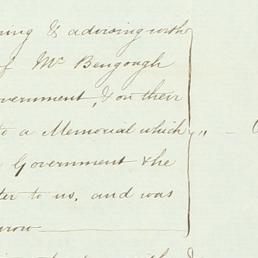 ning & advising with
of Mr Bengough
overnment, & on their
to a Memorial which
Government & he
ter to us, and was